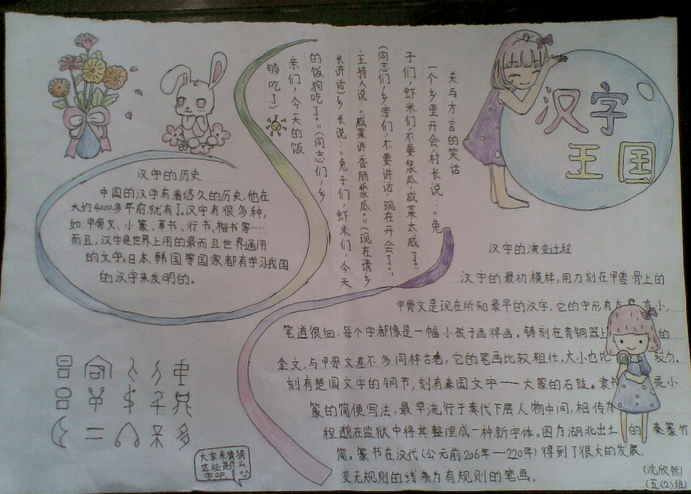 汉字
王国
关与方言的笑话
一个乡里开会，村长说：“兔
子们，虾米们，不要浆瓜，咸菜太咸了。”
（同志们，乡亲们，不要讲话，现在开会了。）
主持人说：“咸菜讲香肠浆瓜。”（现在请乡
长讲话）乡长说：“兔子们，虾米们，今天
的饭狗吃了。”（同志们，乡
亲们，今天的饭
够吃了）
汉字的历史
中国的汉字有着悠久的历史，他在
大约4000多年前就有了，汉字有很多种，
如：甲骨文、小篆、草书、行书、楷书等…
而且，汉字是世界上用的最而且世界通用
的文字，日本、韩国等国家都有学习我国
的汉字来发明的。
汉字的演变过程
汉字的最初模样，用刀刻在甲兽骨上的
甲骨文是现在所知最早的汉字，它的字形有 小，
笔道很细，每个字都像是一幅小孩子画得画。铸刻在青铜器上 的
金文，与甲骨文差不多同样古老，它的笔画比较粗壮，大小也比较
刻有楚国文字的铜节，刻有秦国文字——大篆的石鼓。 是小
篆的简便写法，最早流行于秦代下层人物中间，相传
程邈在监狱中将其整理成一种新字体。图为湖北出土的 秦篆竹
简。篆书在汉代（公元前206年—220年）得到了很大的发展。
变无规则的线条为有规则的笔画。
大家来猜猜
这些是什么
字吧
（沈欣然）
（五（2）班）